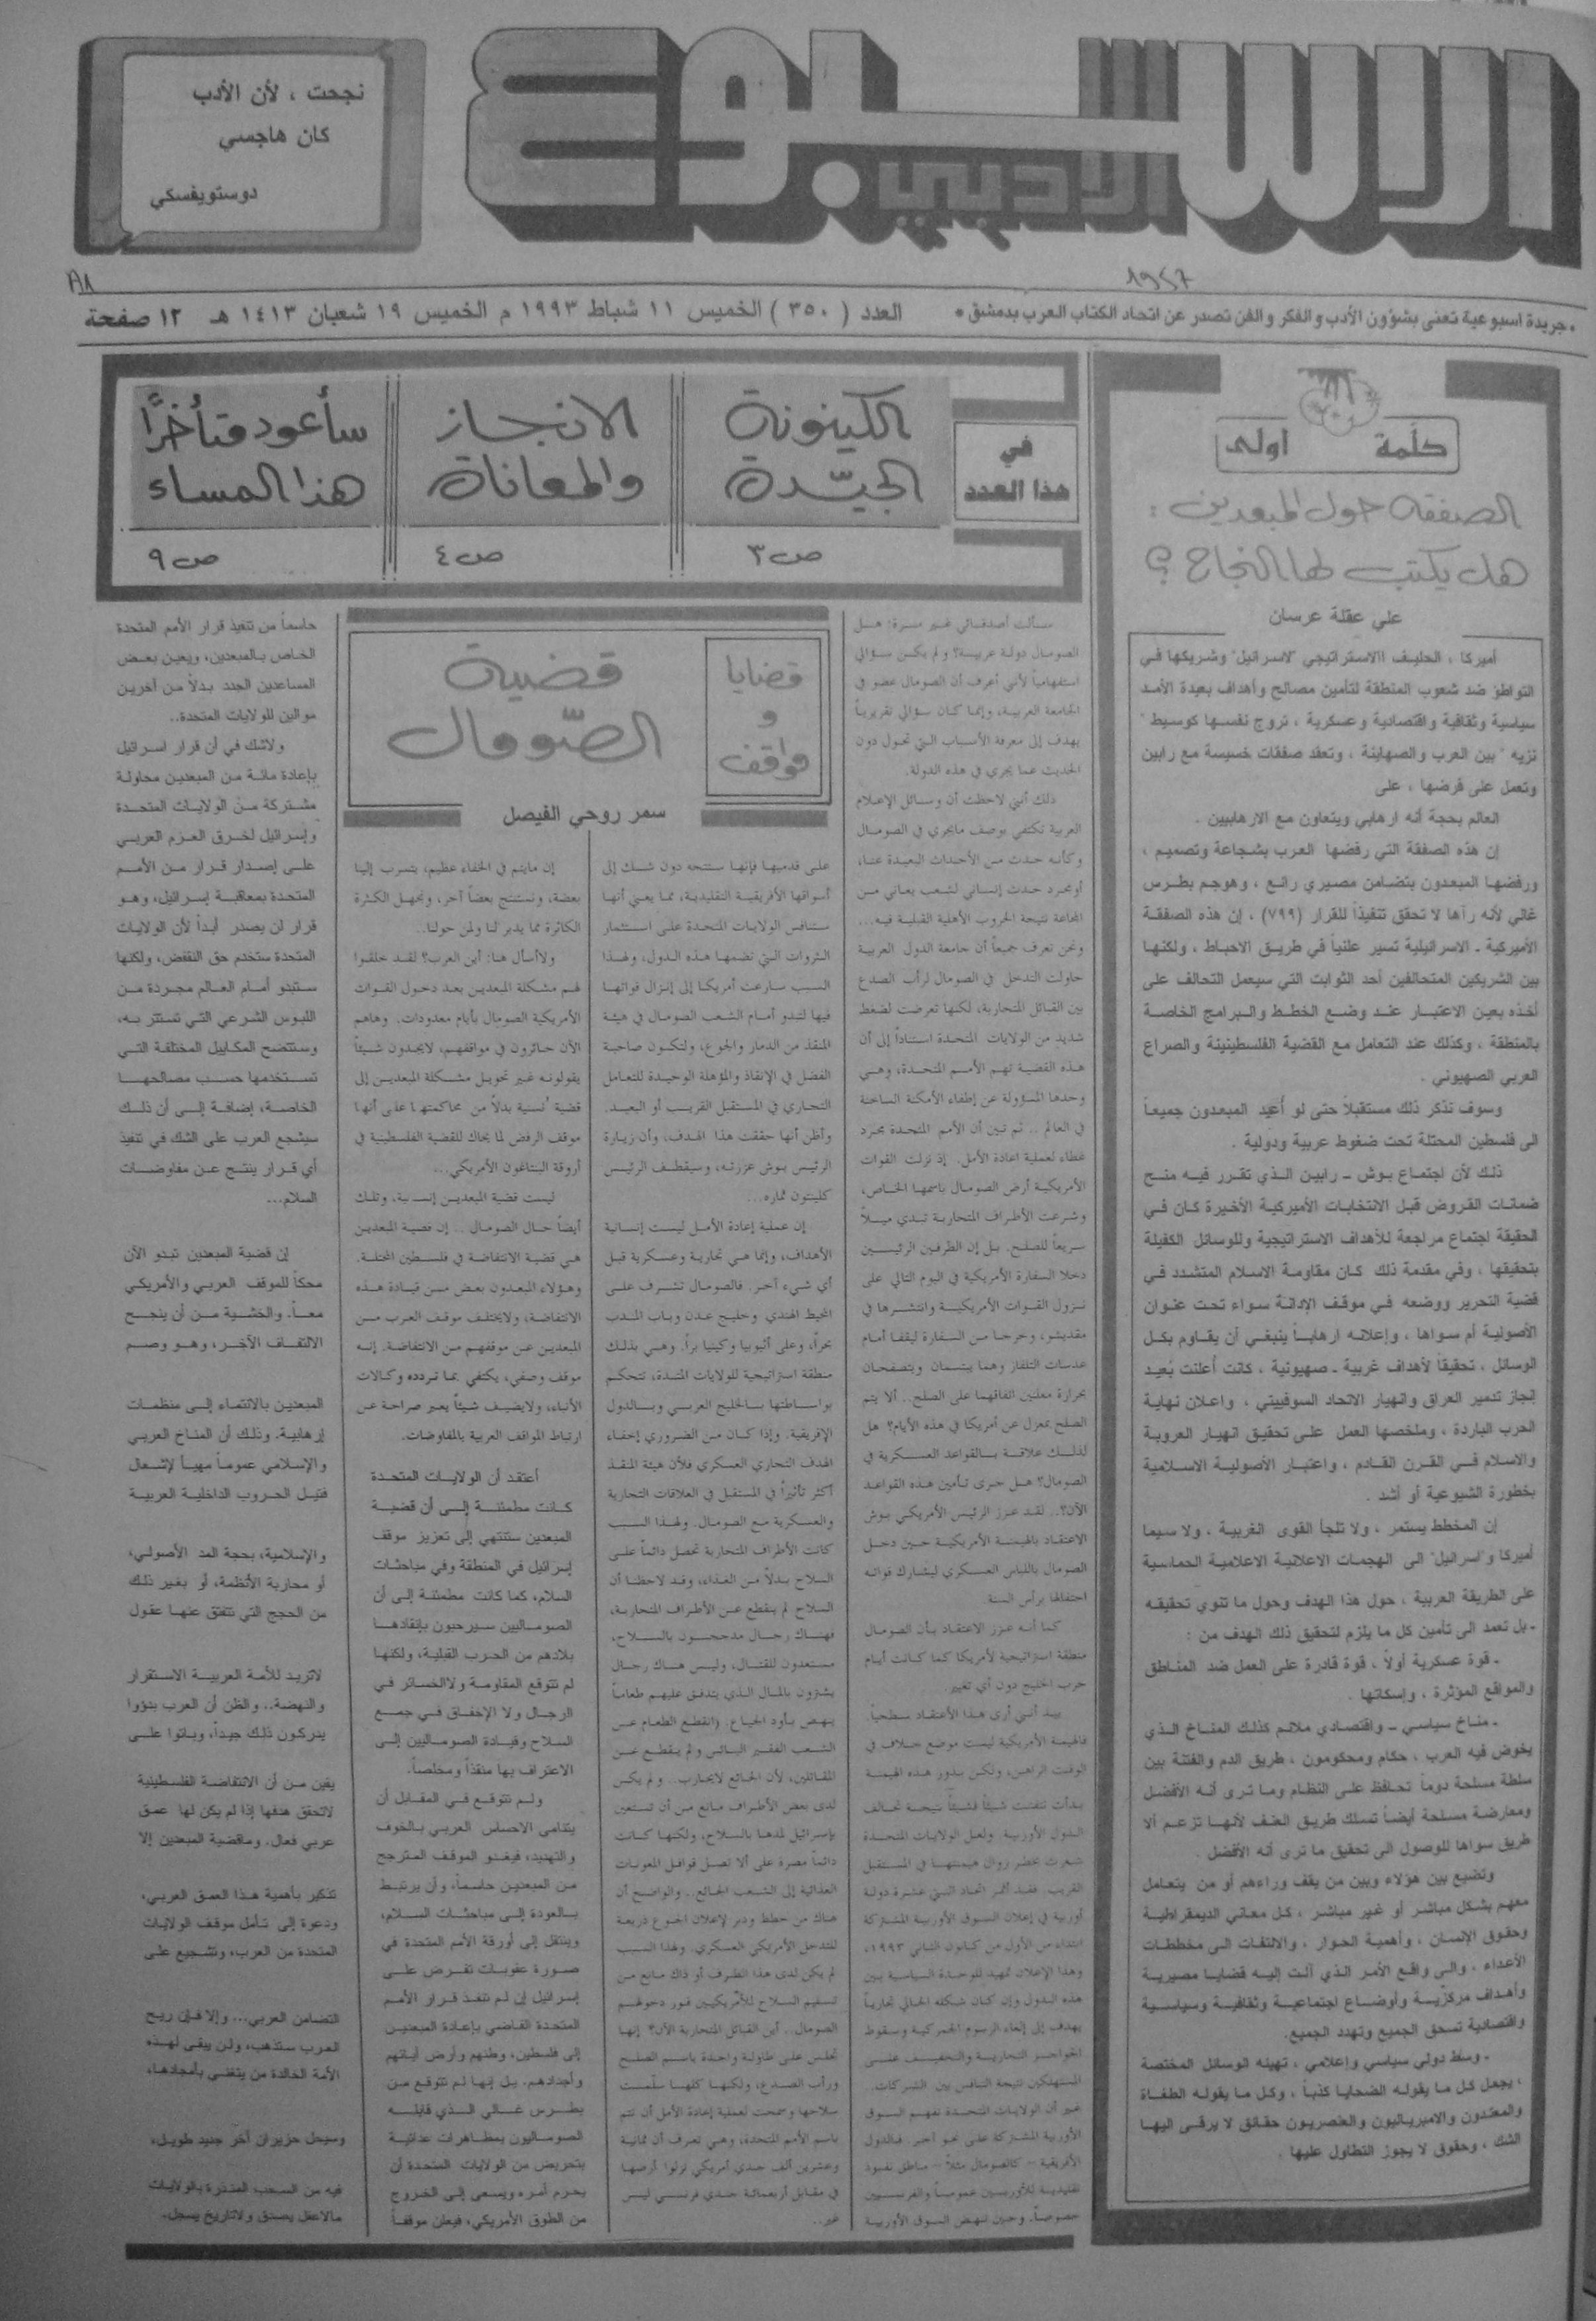 الاسبوع
الأدبي
نجحت ، لأن الأدب
كان هاجسي
دوستويفسكي
• جريدة اسبوعية تعنى بشؤون الأدب والفكر والفن تصدر عن اتحاد الكتاب العرب بدمشق •
العدد ( ٣٥٠ ) الخميس ١١ شباط ١٩٩٣ م الخميس ١٩ شعبان ١٤١٣ هـ ١٢ صفحة
في
هذا العدد
الكينونة
الجيّدة
ص ٣
الانجاز
والمعاناة
ص ٤
سأعود متأخرًا
هذا المساء
ص ٩
كلمة أولى
الصفقة حول المبعدين :
هل يكتب لها النجاح ؟
علي عقلة عرسان
أميركا ، الحليف الاستراتيجي "لاسرائيل" وشريكها في
التواطؤ ضد شعوب المنطقة لتأمين مصالح وأهداف بعيدة الأمد
سياسية وثقافية واقتصادية وعسكرية ، تروج نفسها كوسيط "
نزيه " بين العرب والصهاينة ، وتعقد صفقات خسيسة مع رابين
وتعمل على فرضها ، على
العالم بحجة أنه ارهابي ويتعاون مع الارهابيين .
إن هذه الصفقة التي رفضها العرب بشجاعة وتصميم ،
ورفضها المبعدون بتضامن مصيري رائع ، وهوجم بطرس
غالي لأنه رآها لا تحقق تنفيذاً للقرار (٧٩٩) ، إن هذه الصفقة
الأميركية - الاسرائيلية تسير علنياً في طريق الاحباط ، ولكنها
بين الشريكين المتحالفين أحد الثوابت التي سيعمل التحالف على
أخذه بعين الاعتبار عند وضع الخطط والبرامج الخاصة
بالمنطقة ، وكذلك عند التعامل مع القضية الفلسطينية والصراع
العربي الصهيوني .
وسوف نذكر ذلك مستقبلاً حتى لو أُعيد المبعدون جميعاً
الى فلسطين المحتلة تحت ضغوط عربية ودولية .
ذلك لأن اجتماع بوش - رابين الذي تقرر فيه منح
ضمانات القروض قبل الانتخابات الأميركية الأخيرة كان في
الحقيقة اجتماع مراجعة للأهداف الاستراتيجية وللوسائل الكفيلة
بتحقيقها ، وفي مقدمة ذلك كان مقاومة الاسلام المتشدد في
قضية التحرير ووضعه في موقف الإدانة سواء تحت عنوان
الأصولية أم سواها ، وإعلانه ارهاباً ينبغي أن يقاوم بكل
الوسائل ، تحقيقاً لأهداف غربية - صهيونية ، كانت أُعلنت بُعيد
إنجاز تدمير العراق وانهيار الاتحاد السوفييتي ، واعلان نهاية
الحرب الباردة ، وملخصها العمل على تحقيق انهيار العروبة
والاسلام في القرن القادم ، واعتبار الأصولية الاسلامية
بخطورة الشيوعية أو أشد .
إن المخطط يستمر ، ولا تلجأ القوى الغربية ، ولا سيما
أميركا و"اسرائيل" الى الهجمات الاعلانية الاعلامية الحماسية
على الطريقة العربية ، حول هذا الهدف وحول ما تنوي تحقيقه
- بل تعمد الى تأمين كل ما يلزم لتحقيق ذلك الهدف من :
- قوة عسكرية أولاً ، قوة قادرة على العمل ضد المناطق
والمواقع المؤثرة ، وإسكاتها .
- مناخ سياسي - واقتصادي ملائم كذلك المناخ الذي
يخوض فيه العرب ، حكام ومحكومون ، طريق الدم والفتنة بين
سلطة مسلحة دوماً تحافظ على النظام وما ترى أنه الأفضل
ومعارضة مسلحة أيضاً تسلك طريق العنف لأنها تزعم ألا
طريق سواها للوصول الى تحقيق ما ترى أنه الأفضل .
وتضيع بين هؤلاء وبين من يقف وراءهم أو من يتعامل
معهم بشكل مباشر أو غير مباشر ، كل معاني الديمقراطية
وحقوق الإنسان ، وأهمية الحوار ، والالتفات الى مخططات
الأعداء ، والى واقع الأمر الذي آلت إليه قضايا مصيرية
وأهداف مركزية وأوضاع اجتماعية وثقافية وسياسية
واقتصادية تسحق الجميع وتهدد الجميع.
- وسط دولي سياسي وإعلامي ، تهيئه الوسائل المختصة
، يجعل كل ما يقوله الضحايا كذباً ، وكل ما يقوله الطغاة
والمعتدون والامبرياليون والعنصريون حقائق لا يرقى اليها
الشك ، وحقوق لا يجوز التطاول عليها .
قضايا
و
مواقف
قضية
الصّومال
سمر روحي الفيصل
سألت أصدقائي غير مرة: هل
الصومال دولة عربية؟ ولم يكن سؤالي
استفهامياً لأنني أعرف أن الصومال عضو في
الجامعة العربية، وإنما كان سؤالي تقريرياً
يهدف إلى معرفة الأسباب التي تحول دون
الحديث عما يجري في هذه الدولة.
ذلك أنني لاحظت أن وسائل الإعلام
العربية تكتفي بوصف مايجري في الصومال
وكأنه حدث من الأحداث البعيدة عنا،
أومجرد حدث إنساني لشعب يعاني من
المجاعة نتيجة الحروب الأهلية القبلية فيه...
ونحن نعرف جميعاً أن جامعة الدول العربية
حاولت التدخل في الصومال لرأب الصدع
بين القبائل المتحاربة، لكنها تعرضت لضغط
شديد من الولايات المتحدة استناداً إلى أن
هذه القضية تهم الأمم المتحدة، وهي
وحدها المسؤولة عن إطفاء الأمكنة الساخنة
في العالم .. ثم تبين أن الأمم المتحدة مجرد
غطاء لعملية اعادة الأمل. إذ نزلت القوات
الأمريكية أرض الصومال باسمها الخاص،
وشرعت الأطراف المتحاربة تبدي ميلاً
سريعاً للصلح. بل إن الطرفين الرئيسين
دخلا السفارة الأمريكية في اليوم التالي على
نزول القوات الأمريكية وانتشرها في
مقديشو، وخرجا من السفارة ليقفا أمام
عدسات التلفاز وهما يبتسمان ويتصفحان
بحرارة معلنين اتفاقهما على الصلح.. ألا يتم
الصلح بمعزل عن أمريكا في هذه الأيام؟ هل
لذلك علاقة بالقواعد العسكرية في
الصومال؟ هل جرى تأمين هذه القواعد
الآن؟.. لقد عزز الرئيس الأمريكي بوش
الاعتقاد بالهيمنة الأمريكية حين دخل
الصومال باللباس العسكري ليشارك قواته
احتفالها برأس السنة
كما أنه عزز الاعتقاد بأن الصومال
منطقة استراتيجية لأمريكا كما كانت أيام
حرب الخليج دون أي تغيير.
بيد أنني أرى هذا الأعتقاد سطحياً.
فالهيمنة الأمريكية ليست موضع خلاف في
الوقت الراهن، ولكن بذور هذه الهيمنة
بدأت تتفتت شيئاً فشيئاً نتيجة تحالف
الدول الأوربية ولعل الولايات المتحدة
شعرت بخطر زوال هيمنتها في المستقبل
القريب. فقد أثمر اتحاد اثنتي عشرة دولة
أوربية في إعلان السوق الأوربية المشتركة
ابتداء من الأول من كانون الثاني ١٩٩٣،
وهذا الإعلان تمهيد للوحدة السياسية بين
هذه الدول وإن كان شكله الحالي تجارياً
يهدف إلى إلغاء الرسوم الجمركية وسقوط
الحواجز التجارية والتخفيف على
المستهلكين نتيجة التنافس بين الشركات.
غير أن الولايات المتحدة تفهم السوق
الأوربية المشتركة على نحو آخر. فالدول
الأفريقية - كالصومال مثلاً - مناطق نفوذ
تقليدية للأوربيين عموماً والفرنسيين
خصوصاً. وحين تنهض السوق الأوربية
على قدميها فإنها ستتجه دون شك إلى
أسواقها الأفريقية التقليدية، مما يعني أنها
ستنافس الولايات المتحدة على استثمار
الثروات التي تضمها هذه الدول، ولهذا
السبب سارعت أمريكا إلى إنزال قواتها
فيها لتبدو أمام الشعب الصومال في هيئة
المنقذ من الدمار والجوع، ولتكون صاحبة
الفضل في الإنقاذ والمؤهلة الوحيدة للتعامل
التجاري في المستقبل القريب أو البعيد.
وأظن أنها حققت هذا الهدف، وأن زيارة
الرئيس بوش عززته، وسيقطف الرئيس
كلينتون ثماره...
إن عملية إعادة الأمل ليست إنسانية
الأهداف، وإنما هي تجارية وعسكرية قبل
أي شيء آخر. فالصومال تشرف على
المحيط الهندي وخليج عدن وباب المندب
بحراً، وعلى أثيوبيا وكينيا براً. وهي بذلك
منطقة استراتيجية للولايات المتحدة، تتحكم
بواساطتها بالخليج العربي وبالدول
الإفريقية. وإذا كان من الضروري إخفاء
الهدف التجاري العسكري فلأن هيئة المنقذ
أكثر تأثيراً في المستقبل في العلاقات التجارية
والعسكرية مع الصومال. ولهذا السبب
كانت الأطراف المتحاربة تحصل دائماً على
السلاح بدلاً من الغذاء، وقد لاحظنا أن
السلاح لم ينقطع عن الأطراف المتحاربة،
فهناك رجال مدججون بالسلاح،
مستعدون للقتال، وليس هناك رجال
يشترون بالمال الذي يتدفق عليهم طعاماً
ينهض بأود الجياع. (انقطع الطعام عن
الشعب الفقير البائس ولم ينقطع عن
المقاتلين، لأن الجائع لايحارب.. ولم يكن
لدى بعض الأطراف مانع من أن تستعين
بإسرائيل لمدها بالسلاح، ولكنها كانت
دائماً مصرة على ألا تصل قوافل المعونات
الغذائية إلى الشعب الجائع.. والواضح أن
هناك من خطط ودبر لإعلان الجوع ذريعة
للتدخل الأمريكي العسكري. ولهذا السبب
لم يكن لدى هذا الطرف أو ذاك مانع من
تسليم السلاح للأمريكيين فور دخولهم
الصومال.. أين القبائل المتحاربة الآن؟ إنها
تجلس على طاولة واحدة باسم الصلح
ورأب الصدع، ولكنها كلها سلّمت
سلاحها وسمحت لعملية إعادة الأمل أن تتم
باسم الأمم المتحدة، وهي تعرف أن ثمانية
وعشرين ألف جندي أمريكي نزلوا أرضها
في مقابل أربعمائة جندي فرنسي ليس
غير..
إن مايتم في الخفاء عظيم، يتسرب إلينا
بعضه، ونستنتج بعضاً آخر، ونجهل الكثرة
الكاثرة مما يدبر لنا ولمن حولنا..
ولأسأل هنا: أين العرب؟ لقد خلقوا
لهم مشكلة المبعدين بعد دخول القوات
الأمريكية الصومال بأيام معدودات. وهاهم
الآن حائرون في مواقفهم، لايجدون شيئاً
يقولونه غير تحويل مشكلة المبعدين إلى
قضية إنسية بدلاً من محاكمتها على أنها
موقف الرفض لما يحاك للقضية الفلسطينية في
أروقة البنتاغون الأمريكي...
ليست قضية المبعدين إنسانية، وتلك
أيضاً حال الصومال.. إن قضية المبعدين
هي قضية الانتفاضة في فلسطين المحتلة.
وهؤلاء المبعدون بعض من قيادة هذه
الانتفاضة، ولايختلف موقف العرب من
المبعدين عن موقفهم من الانتفاضة. إنه
موقف وصفي، يكتفي بما تردده وكالات
الأنباء، ولايضيف شيئاً يعبر صراحة عن
ارتباط المواقف العربية بالمفاوضات.
أعتقد أن الولايات المتحدة
كانت مطمئنة إلى أن قضية
المبعدين ستنتهي إلى تعزيز موقف
إسرائيل في المنطقة وفي مباحثات
السلام، كما كانت مطمئنة إلى أن
الصوماليين سيرحبون بإنقاذها
بلادهم من الحرب القبلية، ولكنها
لم تتوقع المقاومة ولاالخسائر في
الرجال ولا الإخفاق في جمع
السلاح وقيادة الصوماليين إلى
الاعتراف بها منقذاً ومخلصاً.
ولم تتوقع في المقابل أن
يتنامى الاحساس العربي بالخوف
والتهديد، فيغدو الموقف المترجح
من المبعدين حاسماً، وأن يرتبط
بالعودة إلى مباحثات السلام،
وينتقل إلى أورقة الأمم المتحدة في
صورة عقوبات تفرض على
إسرائيل إن لم تنفذ قرار الأمم
المتحدة القاضي بإعادة المبعدين
إلى فلسطين، وطنهم وأرض آبائهم
وأجدادهم. بل إنها لم تتوقع من
بطرس غالي الذي قابله
الصوماليون بمظاهرات عدائية
بتحريض من الولايات المتحدة أن
يحزم أمره ويسعى إلى الخروج
من الطوق الأمريكي، فيعلن موقفاً
حاسماً من تنفيذ قرار الأمم المتحدة
الخاص بالمبعدين، ويعين بعض
المساعدين الجدد بدلاً من آخرين
موالين للولايات المتحدة..
ولاشك في أن قرار اسرائيل
بإعادة مائة من المبعدين محاولة
مشتركة من الولايات المتحدة
وإسرائيل لخرق العزم العربي
على إصدار قرار من الأمم
المتحدة بمعاقبة إسرائيل، وهو
قرار لن يصدر أبداً لأن الولايات
المتحدة ستخدم حق النقض، ولكنها
ستبدو أمام العالم مجردة من
اللبوس الشرعي التي تستتر به،
وستتضح المكاييل المختلفة التي
تستخدمها حسب مصالحها
الخاصة، إضافة إلى أن ذلك
سيشجع العرب على الشك في تنفيذ
أي قرار ينتج عن مفاوضات
السلام...
إن قضية المبعدين تبدو الآن
محكاً للموقف العربي والأمريكي
معاً. والخشية من أن ينجح
الالتفاف الآخر، وهو وصم
المبعدين بالانتماء إلى منظمات
إرهابية. وذلك أن المناخ العربي
والإسلامي عموماً مهيأ لإشعال
فتيل الحروب الداخلية العربية
والإسلامية، بحجة المد الأصولي،
أو محاربة الأنظمة، أو بغير ذلك
من الحجج التي تتفتق عنها عقول
لاتريد للأمة العربية الاستقرار
والنهضة.. والظن أن العرب بدؤوا
يدركون ذلك جيداً، وباتوا على
يقين من أن الانتفاضة الفلسطينية
لاتحقق هدفها إذا لم يكن لها عمق
عربي فعال. وماقضية المبعدين إلا
تذكير بأهمية هذا العمق العربي،
ودعوة إلى تأمل موقف الولايات
المتحدة من العرب، وتشجيع على
التضامن العربي... وإلا فإن ريح
العرب ستذهب، ولن يبقى لهذه
الأمة الخالدة من يتغنى بأمجادها،
وسيحل حزيران آخر جديد طويل،
فيه من السحب المنذرة بالولايات
مالاعقل يصدق ولاتاريخ يسجل.